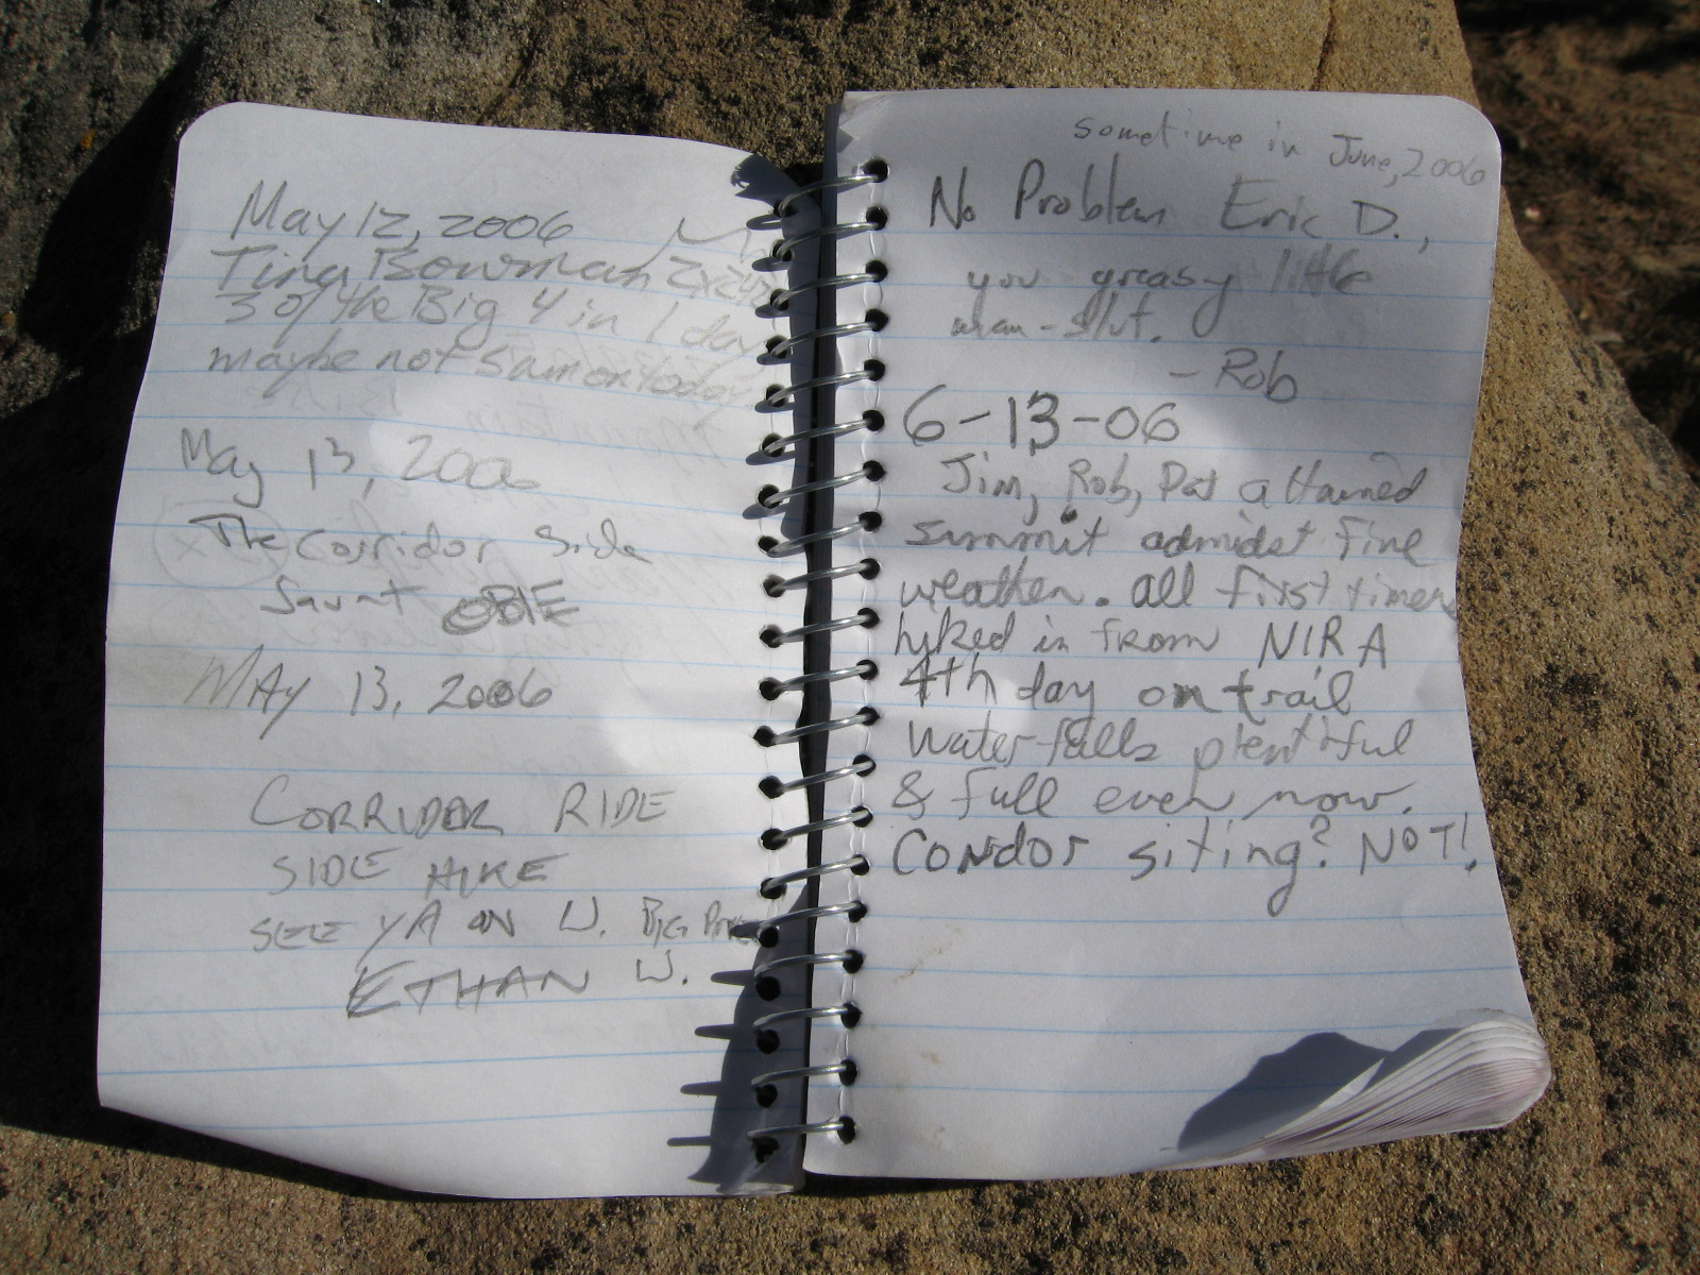 May 12, 2006
Tina Bowman
3 of the Big 4 in 1 day
maybe not Samon today
May 13, 2006
The Corridor Side
Saunt OBIE
MAY 13, 2006
CORRIDOR RIDE
SIDE HIKE
SEE YA ON W. BIG PINE
ETHAN W.
sometime in June, 2006
No Problem Eric D.,
you greasy little
man-slut.
- Rob
6-13-06
Jim, Rob, Pat attained
summit admidst fine
weather. all first timers
hyked in from NIRA
4th day on trail
Waterfalls plentiful
& full even now.
Condor siting? NOT!